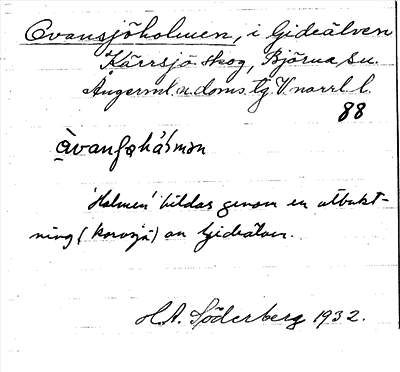 Ovansjöholmen, i Gideälven
Kärrsjö skog, Björna sn.
Ångerml. n. doms. lg. V norrl. l.
88
'Holmen' bildas genom en utbukt-
ning (korvsjö) av Gideälven.
H.A. Söderberg 1932.